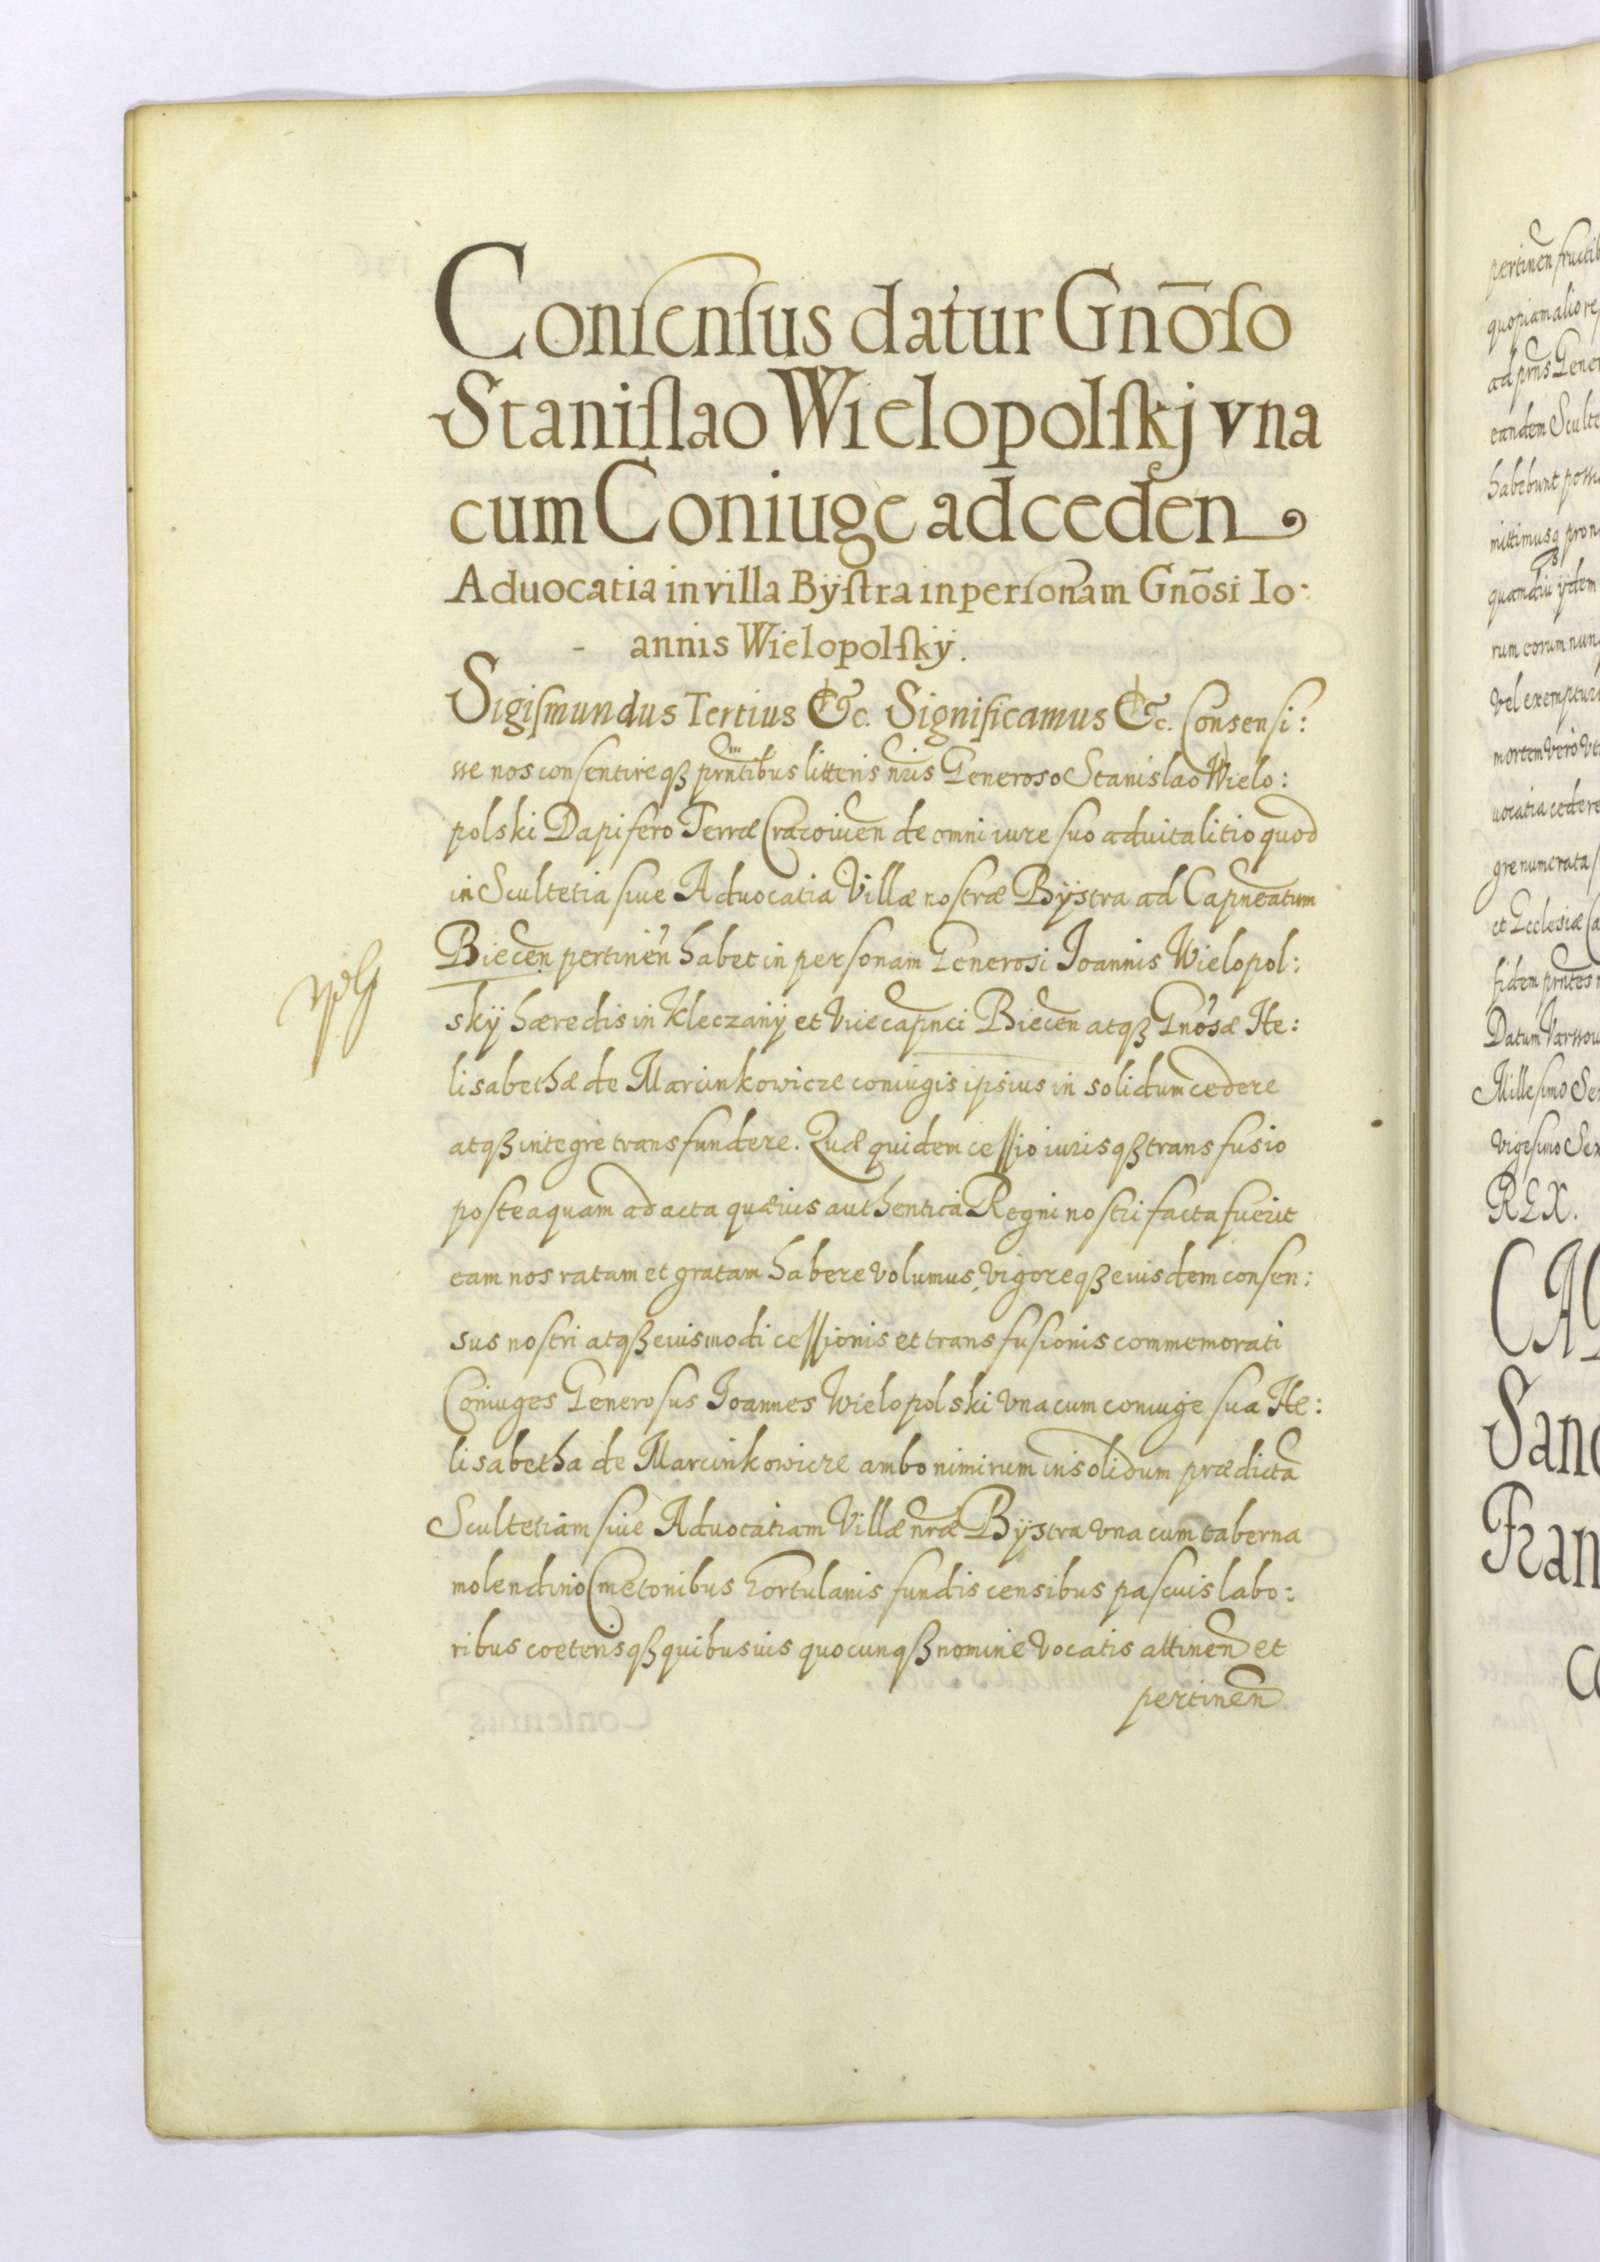 Consensus datur Gnōso
Stanislao Wielopolskj vna
cum Coniuge ad ceden
Aduocatia in villa Bÿstra in personam Gnōsi Io:
- annis Wielopolskÿ.
Sigismundus Tertius &c. Significamus &c. Consensi:
sse nos consentireqȝ prntibus litteris nris Generoso Stanislao Wielo:
polski Dapifero Terræ Cracouien de omni iure suo aduitalitio quod
in Scultetia siue Aduocatia Villæ nostræ Bÿstra ad Capneatum
Biecen pertinen habet in personam Generosi Joannis Wielopol:
skÿ hæredis in Kleczanÿ et Vicecapnei Biecen atqȝ Gnosæ He:
lisabethæ de Marcinkowicze coniugis ipsius in solidum cedere
atqȝ integrè transfundere. Quæ quidem cessio iurisqȝ transfusio
posteaquam ad acta quæuis authentica Regni nostri facta fuerit
eam nos ratam et gratam habere volumus, vigoreqȝ eiusdem consen:
sus nostri atqȝ eiusmodi cessionis et transfusionis commemorati
Coniuges Generosus Joannes Wielopolski vna cum coniuge sua He:
lisabetha de Marcinkowicze ambo nimirum in solidum prædictā
Scultetiam siue Aduocatiam Villæ nræ Bÿstra vna cum taberna
molendino Cmetonibus hortulanis fundis censibus pascuis labo:
ribus coeterisqȝ quibusuis quocunqȝ nomine vocatis attinen et
pertinen
pertinen
quopiam alio
ad prns
eandem
habebunt
mittimusqȝ
quamdiu ijdem
rum eorum
vel
mortem vero
uocatia cedere
gre numerata
et Ecclesiæ
fidem prntes
Datum
Millesimo
Vigesimo
REX.